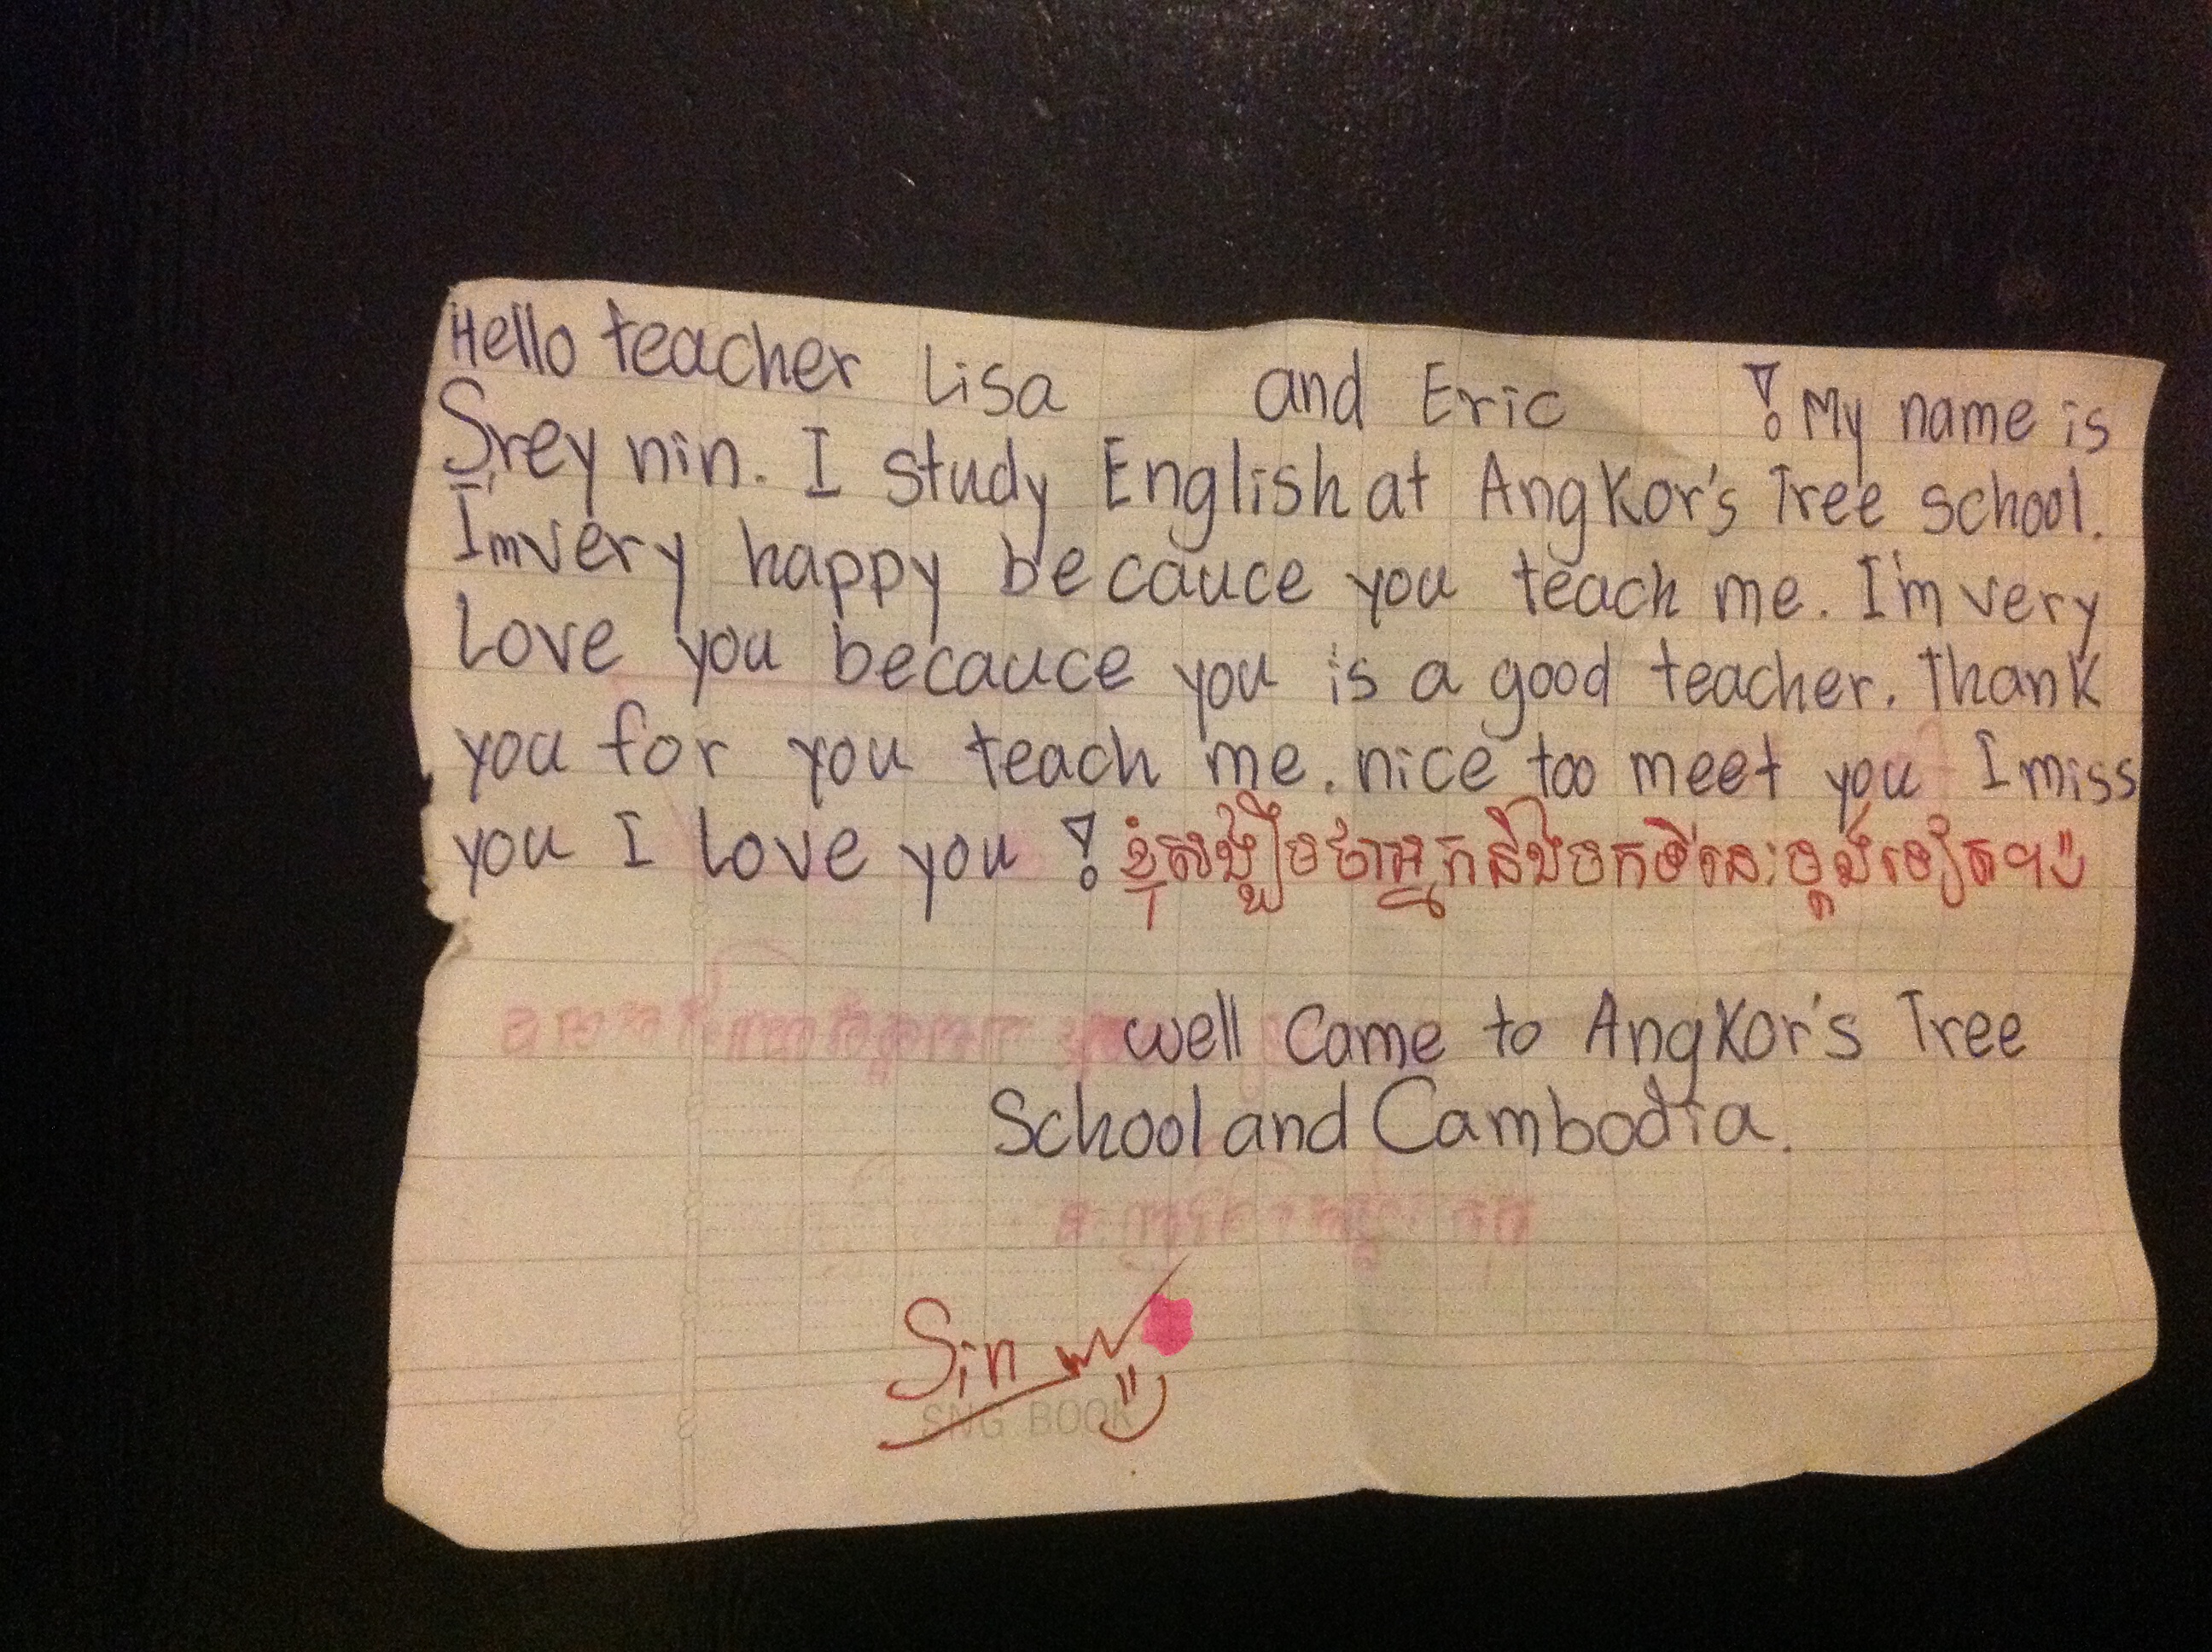 Hello teacher Lisa and Eric ! My name is
Srey nin. I study English at Angkor's Tree school.
I'm very happy becauce you teach me. I'm very
Love you becauce you is a good teacher. Thank
you for you teach me. nice too meet you I miss
you I Love you ! ខ្ញុំសង្ឃឹមថាអ្នកនឹងមកទីនេះម្ដងទៀត។
well Come to Angkor's Tree
School and Cambodia.
Sin
SNG BOOK